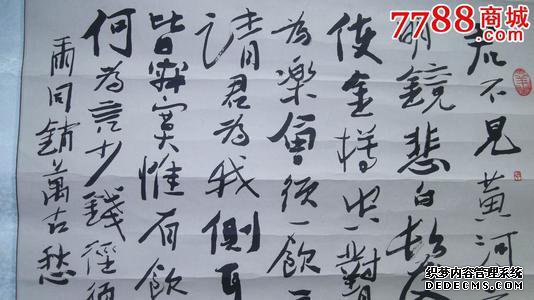 7788商城
君不見黃河
明鏡悲白髮
使金樽空對
為樂會須一飲
請君為我側耳
皆寂寞惟有飲
何為言少錢徑須
爾同銷萬古愁
织梦内容管理系统
DEDECMS.COM